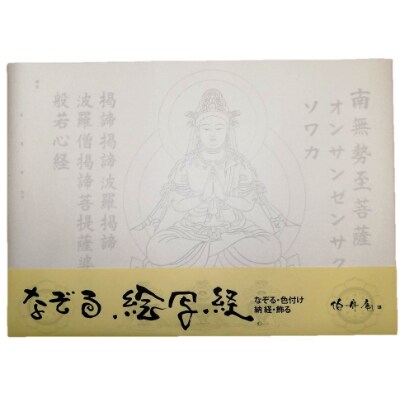 南無勢至菩薩
オンサンゼンサク
ソワカ
掲諦掲諦波羅掲諦
波羅僧掲諦菩提薩婆
般若心経
なぞる絵写経
なぞる・色付け
納経・飾る